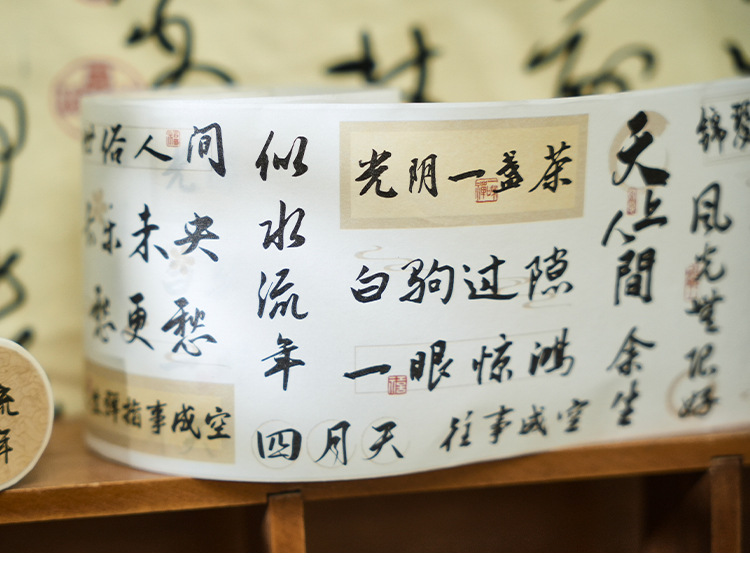 世俗人间
乐未央
愁更愁
弹指事成空
似水流年
光阴一盏茶
白驹过隙
一眼惊鸿
四月天
往事成空
天上
人間
余生
锦
风光無限好
流年